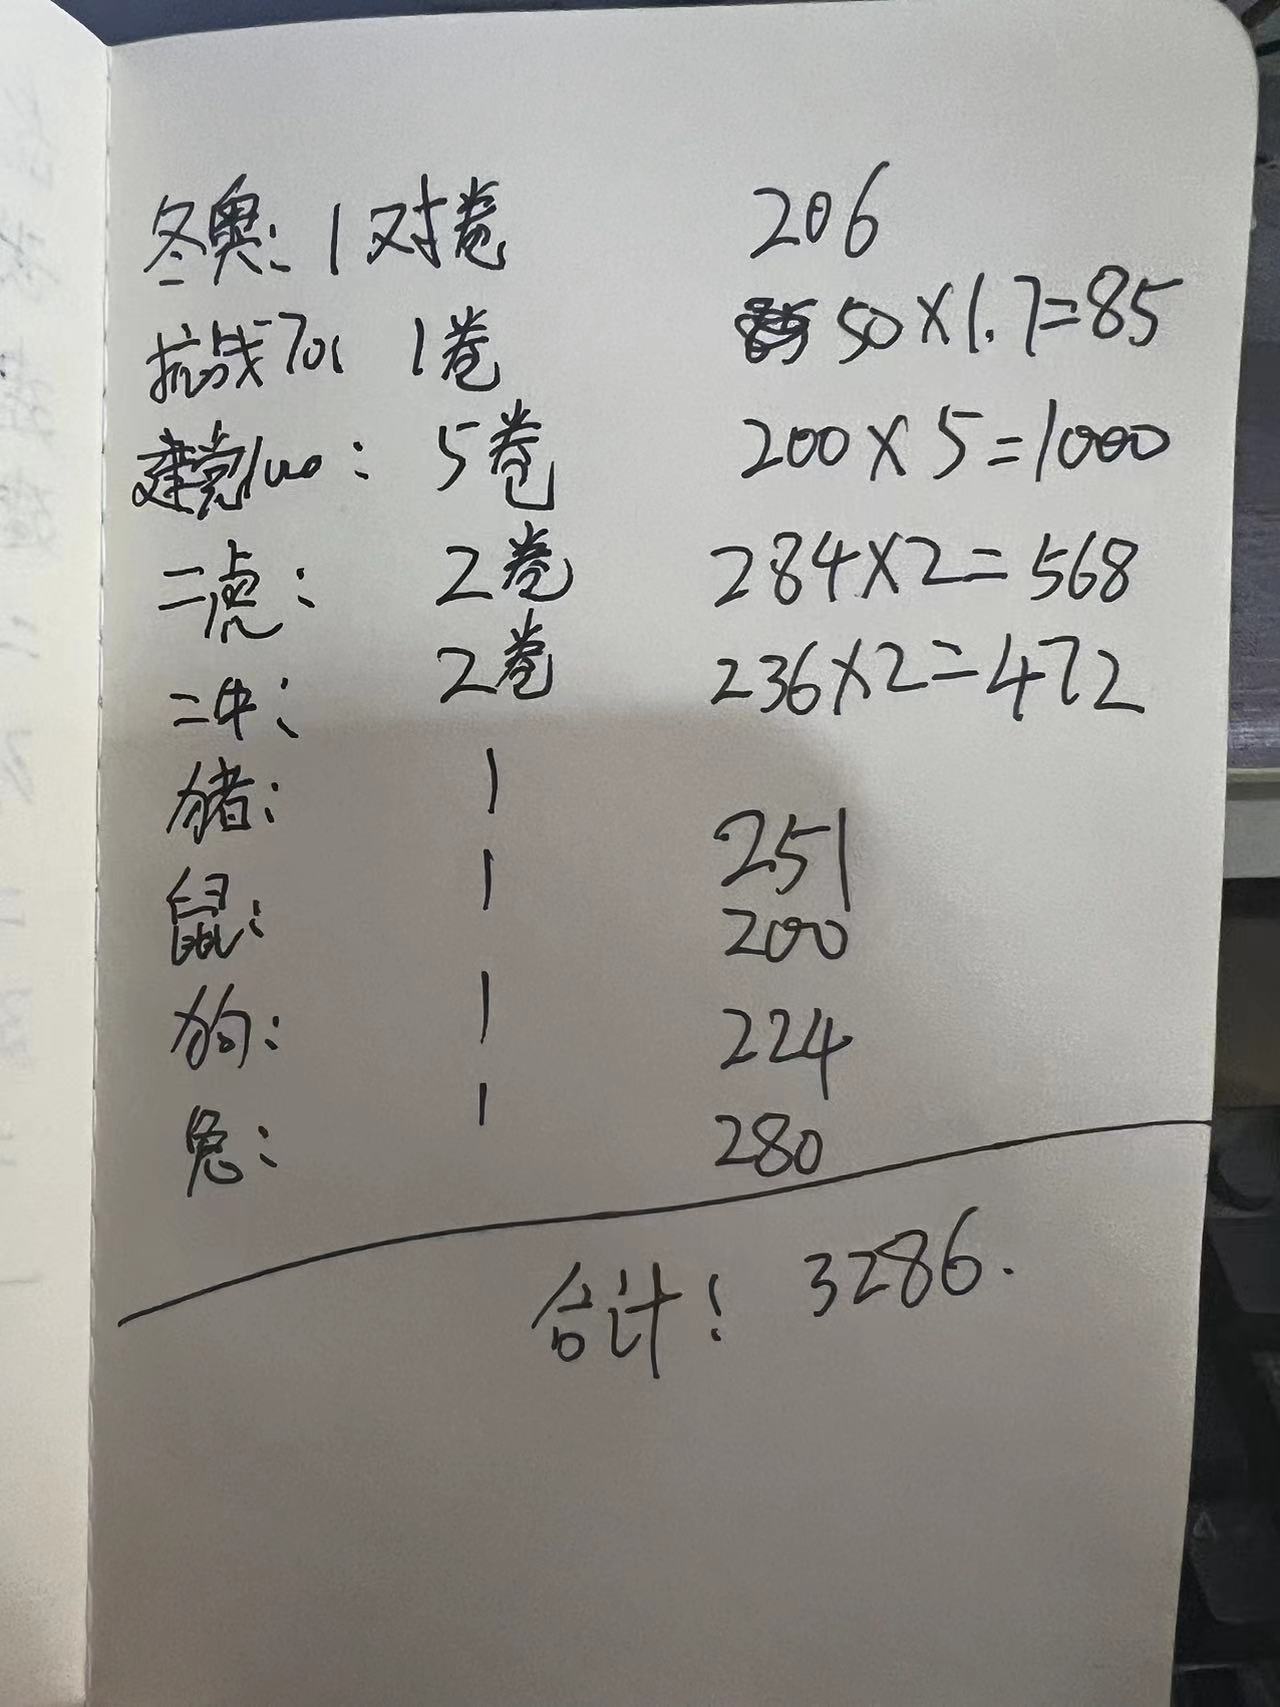 冬奥: 1 对卷 206
抗战70: 1卷 50×1.7=85
建党100: 5卷 200×5=1000
二虎: 2卷 284×2=568
二牛: 2卷 236×2=472
猪: 1 251
鼠: 1 200
狗: 1 224
兔: 1 280
合计: 3286.